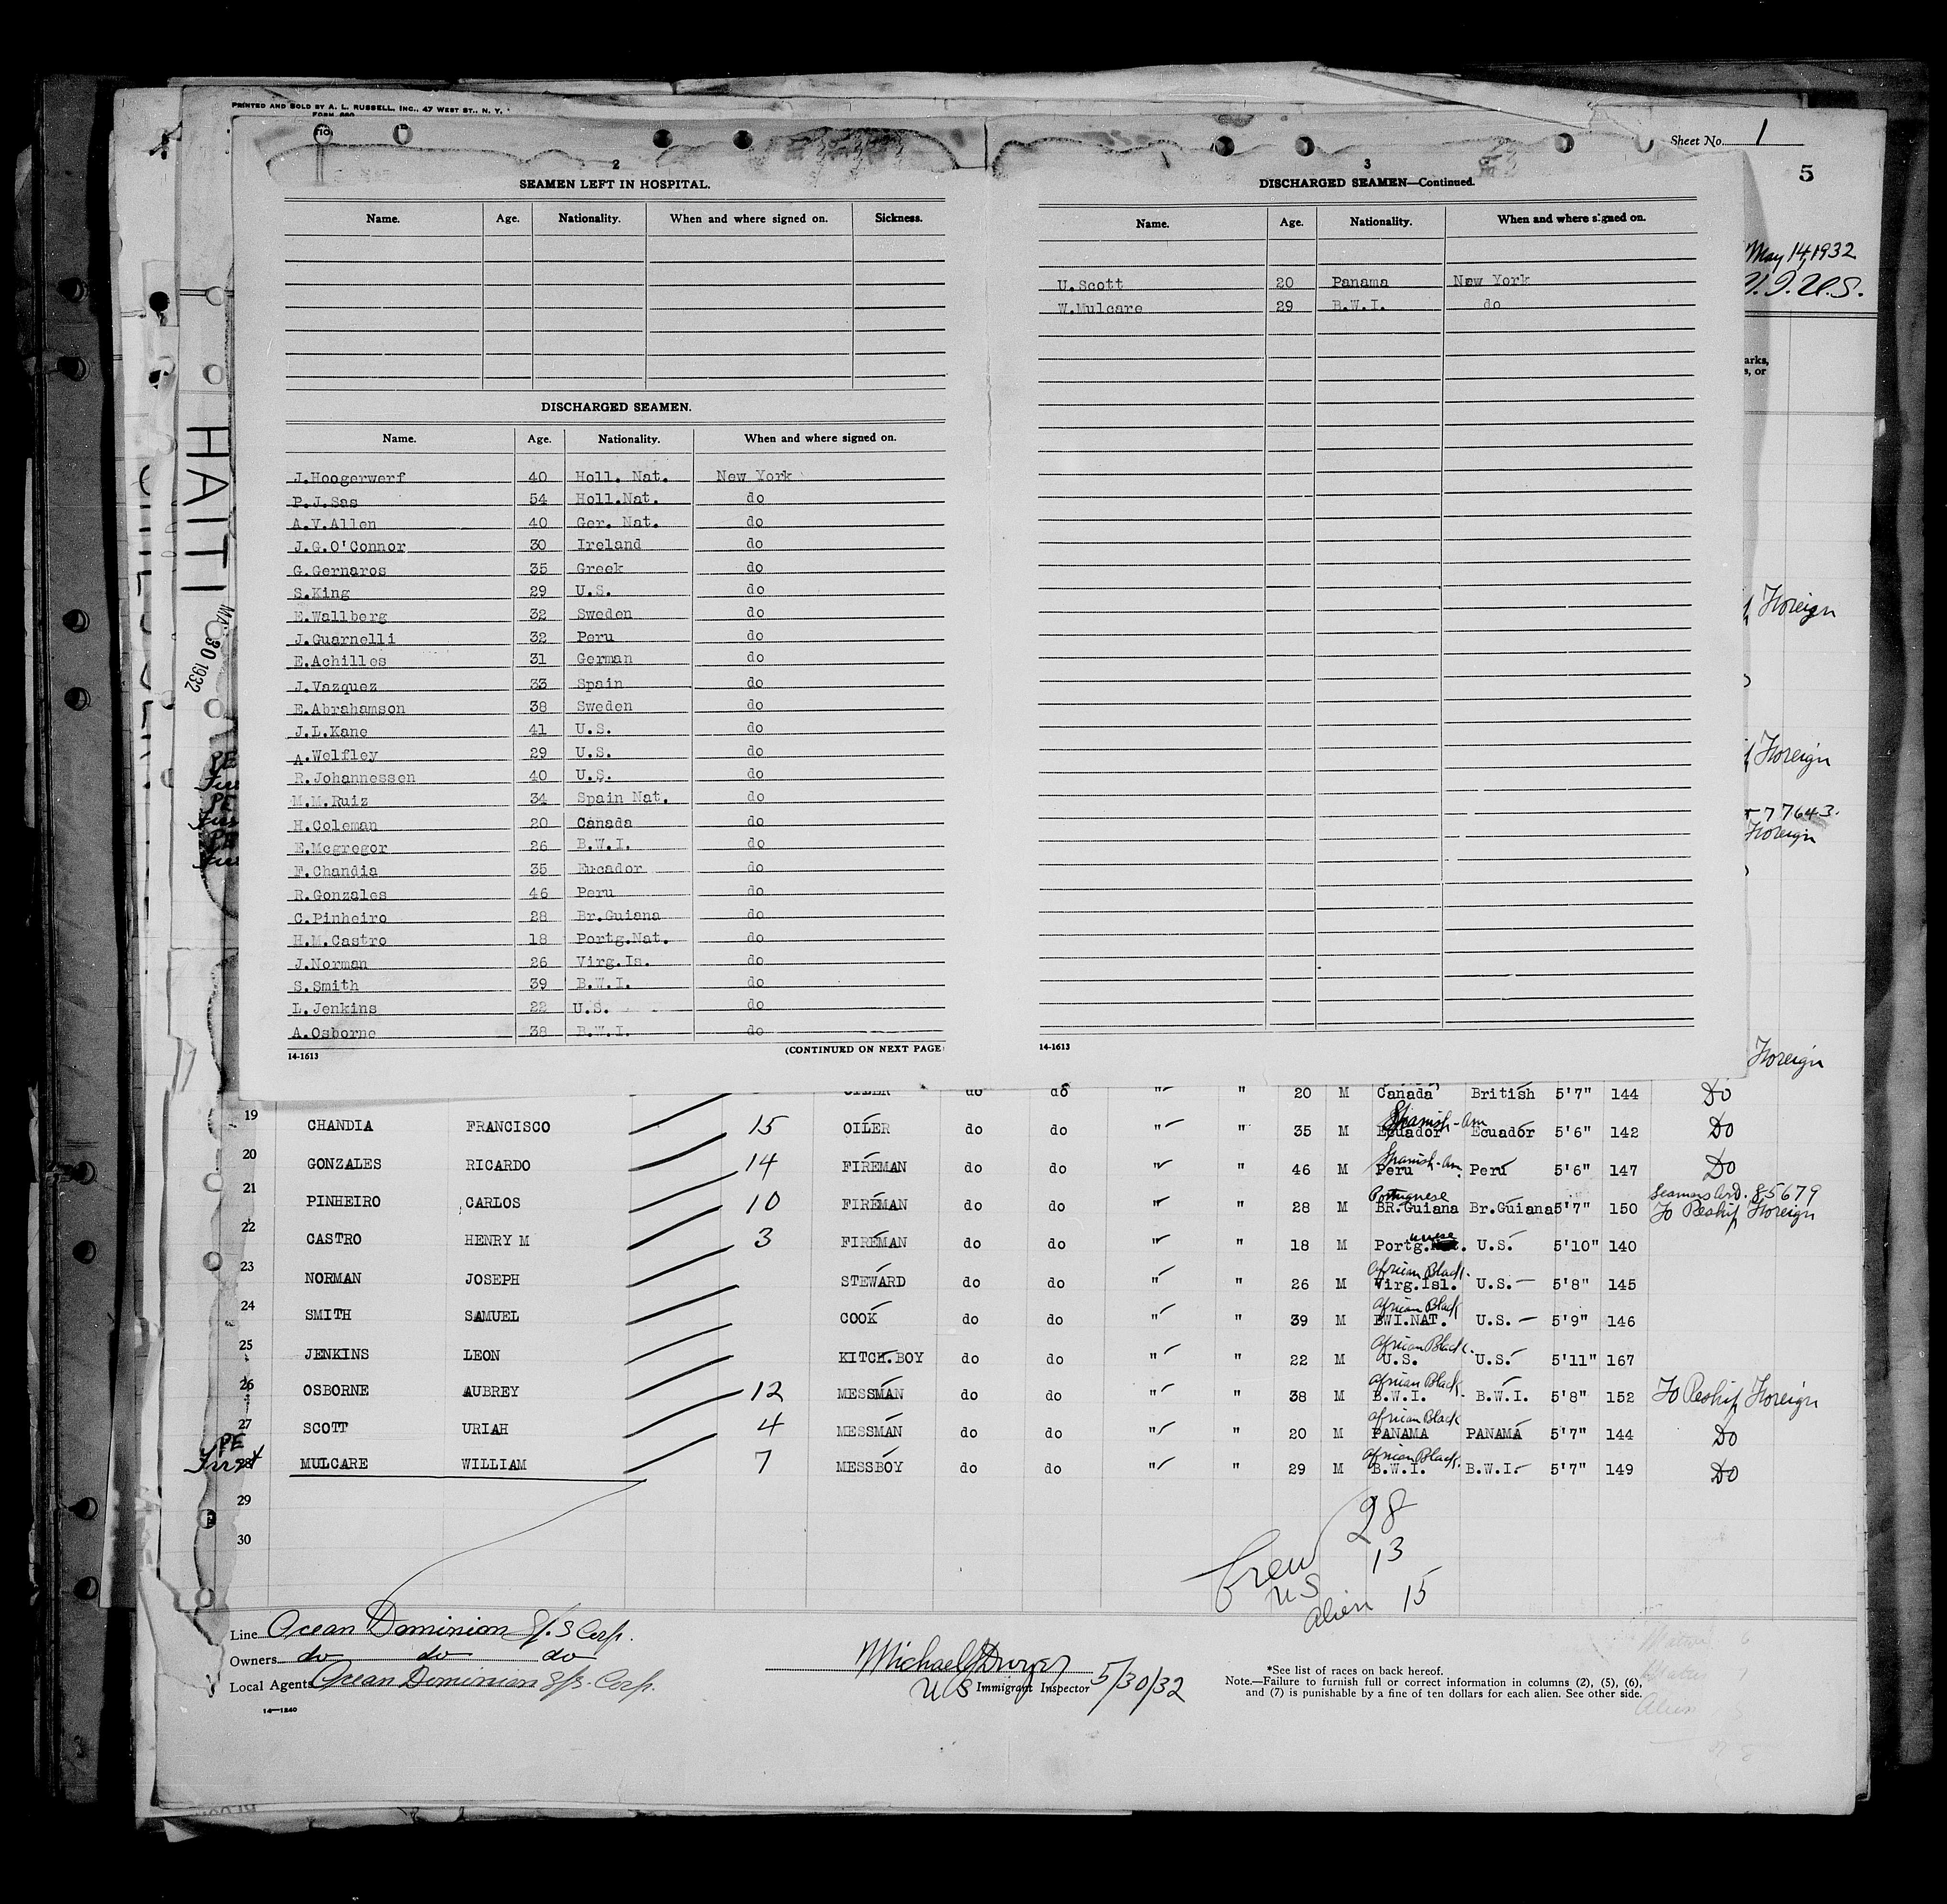 PRINTED AND SOLD BY A. L. RUSSELL, INC., 47 WEST ST., N. Y.
Sheet No. 1
5
May 14, 1932
HAITI
30 1932
2
SEAMEN LEFT IN HOSPITAL.
Name. Age. Nationality. When and where signed on. Sickness.
DISCHARGED SEAMEN.
Name. Age. Nationality. When and where signed on.
J.Hoogerwerf 40 Holl. Nat. New York
P.J.Sas 54 Holl.Nat. do
A.V.Allen 40 Ger. Nat. do
J.G.O'Connor 30 Ireland do
G.Gernaros 35 Greek do
S.King 29 U.S. do
E.Wallberg 32 Sweden do
J.Guarnelli 32 Peru do
E.Achilles 31 German do
J.Vazquez 33 Spain do
E.Abrahamson 38 Sweden do
J.L.Kane 41 U.S. do
A.Welfley 29 U.S. do
R.Johannessen 40 U.S. do
M.M.Ruiz 34 Spain Nat. do
H.Coleman 20 Canada do
E.Mcgregor 26 B.W.I. do
F.Chandia 35 Eucador do
R.Gonzales 46 Peru do
C.Pinheiro 28 Br.Guiana do
H.M.Castro 18 Portg.Nat. do
J.Norman 26 Virg.Is. do
S.Smith 39 B.W.I. do
L.Jenkins 22 U.S. do
A.Osborne 38 B.W.I. do
14-1613 (CONTINUED ON NEXT PAGE
3
DISCHARGED SEAMEN—Continued.
Name. Age. Nationality. When and where signed on.
U.Scott 20 Panama New York
W.Mulcare 29 B.W.I. do
14-1613
arks,
s, or
Foreign
Foreign
77643.
Foreign
Foreign
OILER do do " " 20 M Canada British 5'7" 144 Do
19 CHANDIA FRANCISCO 15 OILER do do " " 35 M Spanish-Am Ecuador Ecuador 5'6" 142 Do
20 GONZALES RICARDO 14 FIREMAN do do " " 46 M Spanish-Am. Peru Peru 5'6" 147 Do
21 PINHEIRO CARLOS 10 FIREMAN do do " " 28 M Portuguese BR.Guiana Br.Guiana 5'7" 150 Seamans Crd. 85679 To Reship Foreign
22 CASTRO HENRY M 3 FIREMAN do do " " 18 M Portg. U.S. 5'10" 140
23 NORMAN JOSEPH STEWARD do do " " 26 M African Black. Virg.Isl. U.S. 5'8" 145
24 SMITH SAMUEL COOK do do " " 39 M African Black BWI.NAT. U.S. 5'9" 146
25 JENKINS LEON KITCH.BOY do do " " 22 M African Black. U.S. U.S. 5'11" 167
26 OSBORNE AUBREY 12 MESSMAN do do " " 38 M African Black. B.W.I. B.W.I. 5'8" 152 To Reship Foreign
27 SCOTT URIAH 4 MESSMAN do do " " 20 M African Black PANAMA PANAMA 5'7" 144 Do
PE
28 MULCARE WILLIAM 7 MESSBOY do do " " 29 M African Black. B.W.I. B.W.I. 5'7" 149 Do
29
30
Crew 28
US 13
Alien 15
Line Ocean Dominion S/S Corp.
Owners do do do
Local Agents Ocean Dominion S/S Corp.
Michael Dwyer 5/30/32
US Immigrant Inspector
*See list of races on back hereof.
Note.—Failure to furnish full or correct information in columns (2), (5), (6),
and (7) is punishable by a fine of ten dollars for each alien. See other side.
14—1240